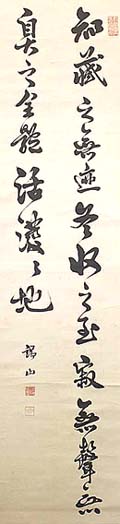 知藏之無迹冬收之至寂無聲無
臭之全體活潑々地
山